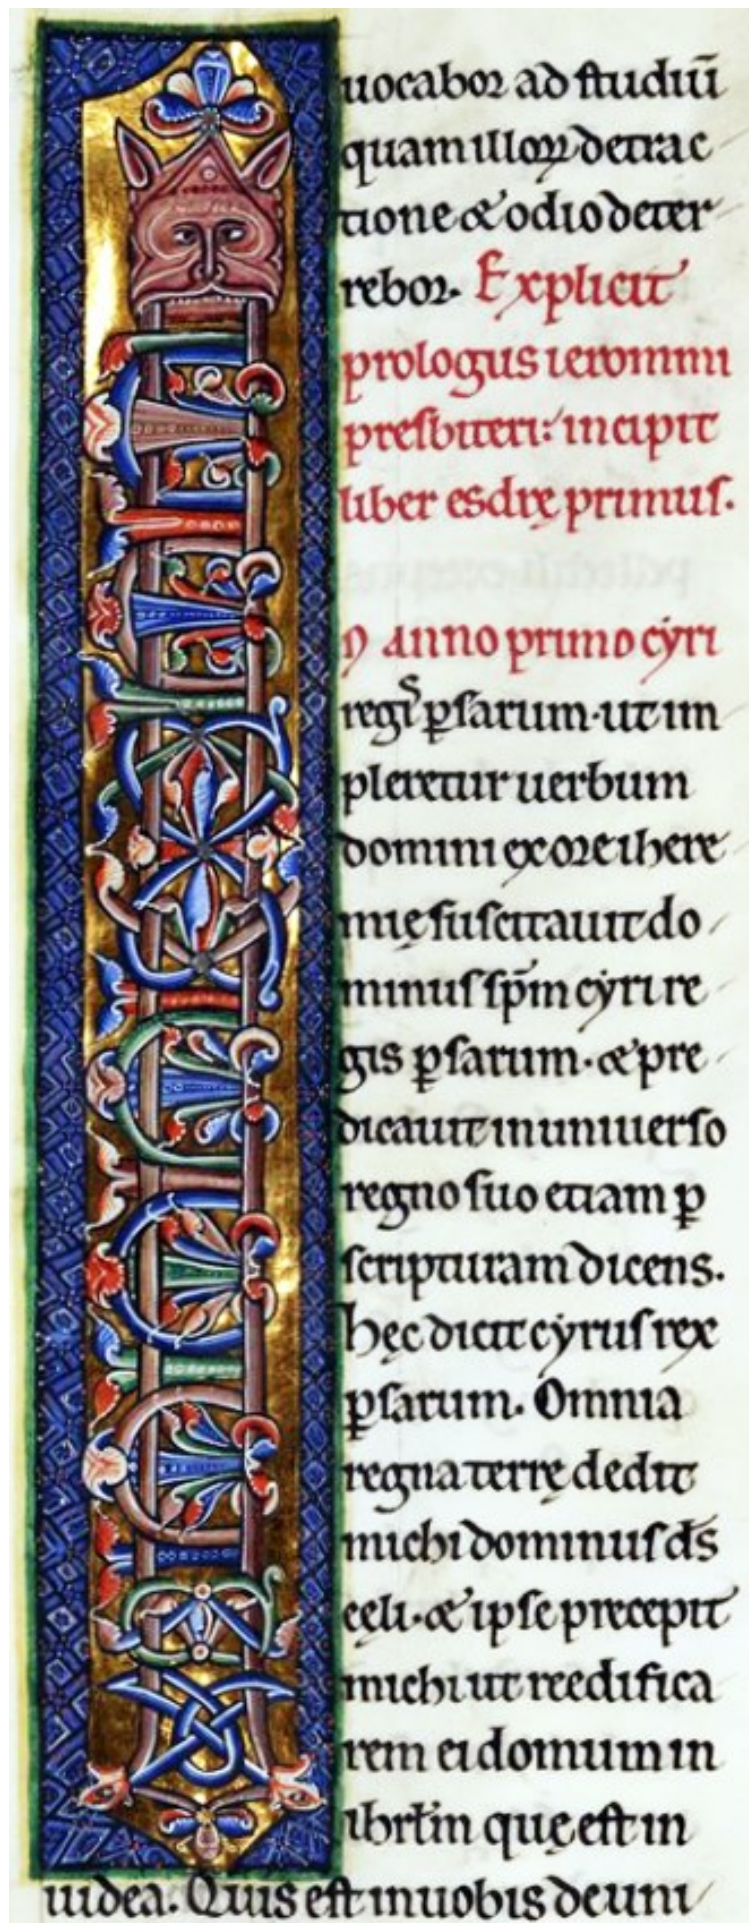 uocabor ad studiū
quam illoꝝ detrac
tione & odio deter
rebor. Explicit
prologus ieronimi
presbiteri: incipit
liber esdrę primus.
N anno primo cyri
regis ꝑsarum. ut im
pleretur uerbum
domini ex ore ihere
mię suscitauit do
minus sp̄m cyri re
gis ꝑsarum. & pre
dicauit in uniuerso
regno suo etiam ꝑ
scripturam dicens.
hęc dicit cyrus rex
ꝑsarum. Omnia
regna terrę dedit
michi dominus d̄s
cęli. & ipse precepit
michi ut reedifica
rem ei domum in
ihrl̄m quę est in
iudea. Quis est in uobis de uni